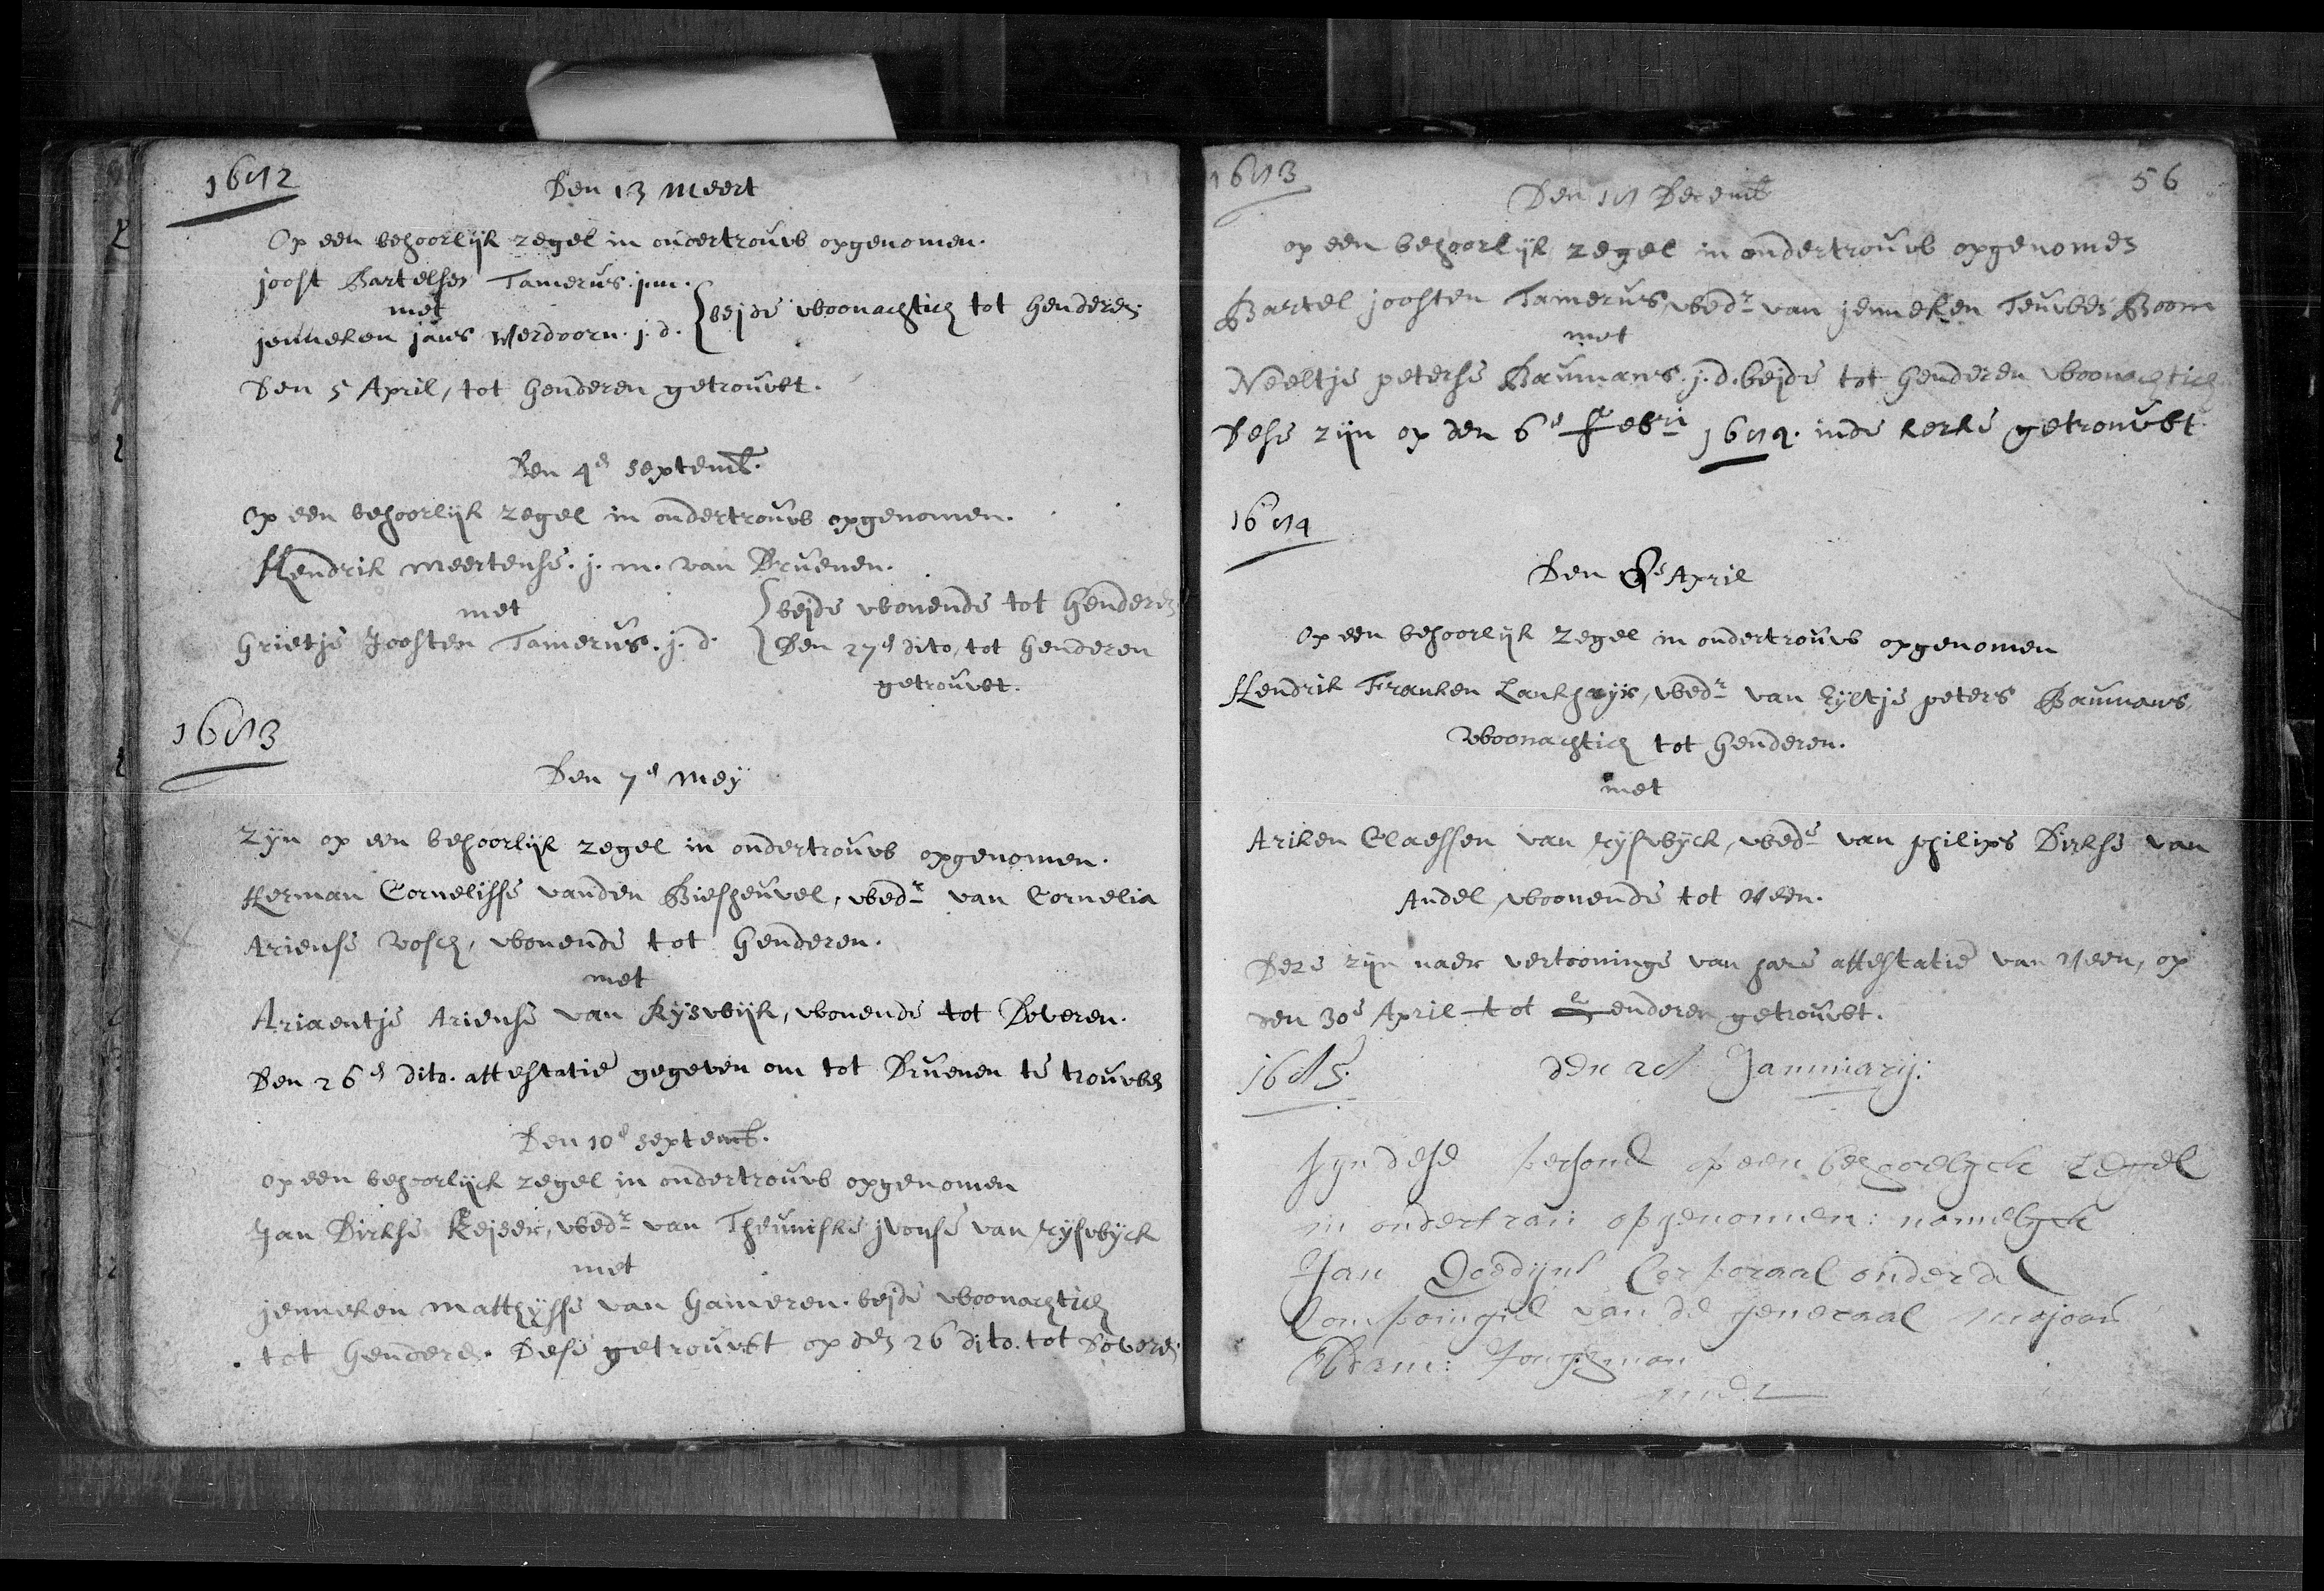 1692
Den 13 Meert
Op een behoorlijk zegel in ondertrouwb opgenomen.
joost Bartelsen Tamerus. j.m.
met
jenneken jans Verdoorn. j. d. { beijde woonachtich tot Henderen
Den 5 April, tot Henderen getrouwt.
Den 4e Septemb.
Op een behoorlijk zegel in ondertrouw opgenomen.
Hendrik Meertense. j. m. van Drunen.
met { beijde wonende tot Henderen
Grietje Joosten Tamerus. j. d. { Den 27e dito, tot Henderen
getrouwt.
1693
Den 7e Meij
Zijn op een behoorlijk zegel in ondertrouw opgenomen.
Herman Cornelisse vanden Biesheuvel, wedr van Cornelia
Ariense Bosch, wonende tot Henderen.
met
Ariaentje Ariense van Rijswijk, wonende tot Doveren.
Den 26e dito. attestatie gegeven om tot Drunen te trouwen
Den 10e Septemb.
op een behoorlijck zegel in ondertrouw opgenomen
Jan Dirkse Keijser, wedr van Theuniske jvonse van Rijswijck
met
jenneken Matthijsse van Gameren. beijde woonachtich
tot Henderen. Dese getrouwt op den 26 dito. tot Doveren
1693
56
Den 19 Decemb
op een behoorlijk zegel in ondertrouw opgenomen
Bartel joosten Tamerus, wedr van jenneken Teuwen Boom
met
Neeltje peterse Baumans. j. d. beijde tot Henderen woonachtich
Dese zijn op den 6e Febri 1694. inde kerke getrouwt.
1694
Den e April
Op een behoorlijk zegel in ondertrouw opgenomen
Hendrik Franken Lankhaijr, wedr van Eijltje peters Baumans,
Woonachtich tot Henderen.
met
Ariken Claessen van Rijswijck, wede van philips Dirkse van
Andel, woonende tot Veen.
Deze zijn naer vertooninge van hare attestatie van Veen, op
den 30e April tot Henderen getrouwt.
1695. den 29 Jannuarij:
sijn dese persone op een behoorlijck zegel
in ondertrau opgenomen: namelijck
Jan Corporaal onder de
Compaingie van de generaal majoor
Jongkman
met